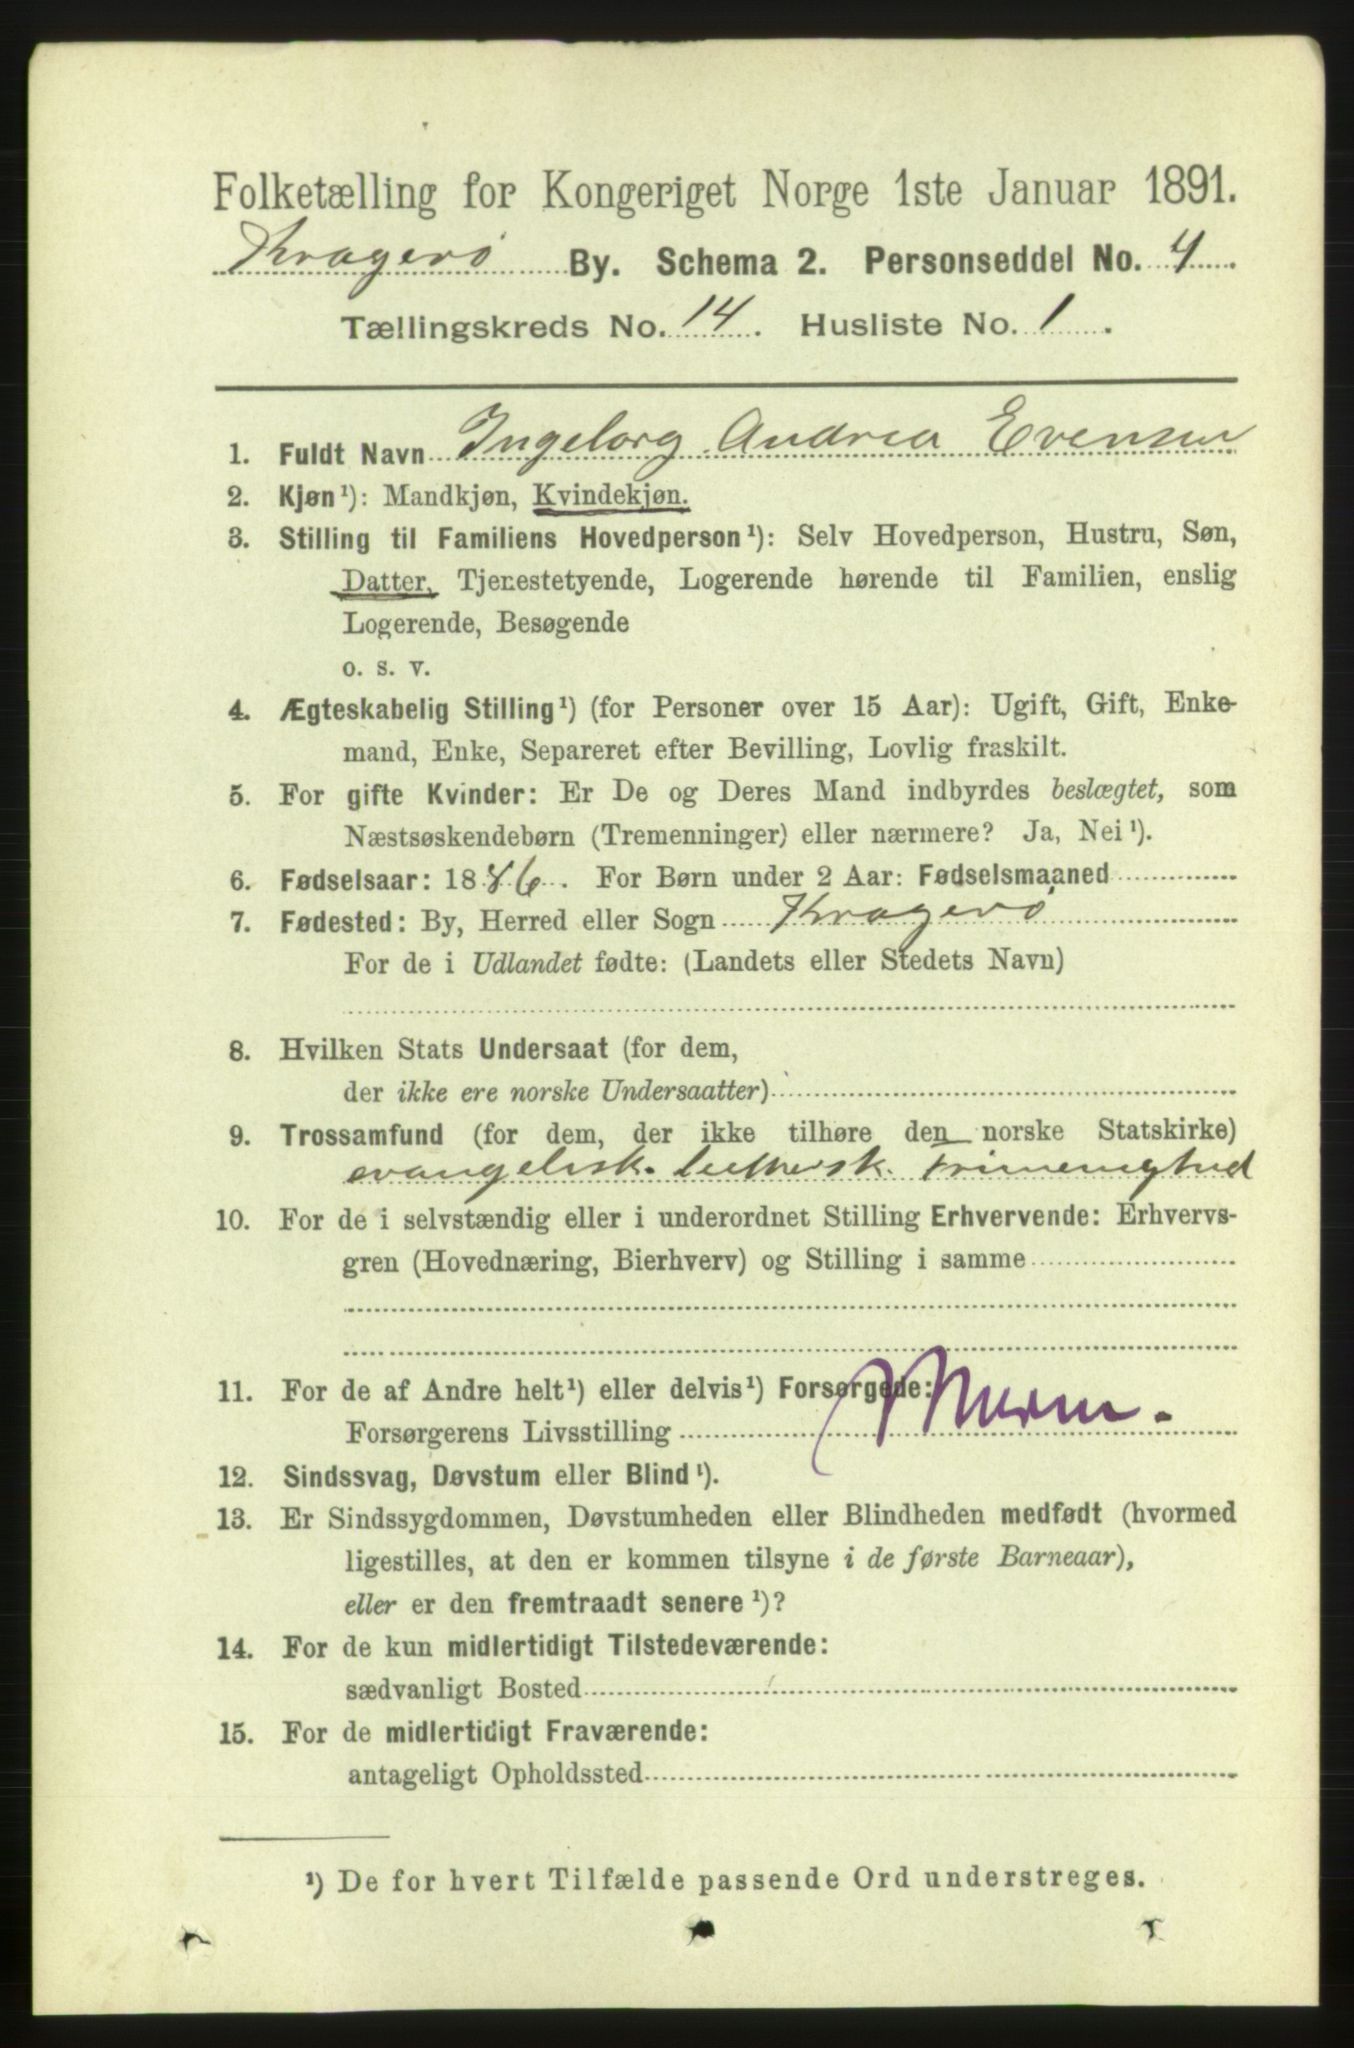 Folketælling for Kongeriget Norge 1ste Januar 1891.
Kragerø By. Schema 2. Personseddel No. 4
Tællingskreds No. 14. Husliste No. 1.
1. Fuldt Navn Ingeborg Andrea Evensen
2. Kjøn¹): Mandkjøn, Kvindekjøn.
3. Stilling til Familiens Hovedperson¹): Selv Hovedperson, Hustru, Søn,
Datter, Tjenestetyende, Logerende hørende til Familien, enslig
Logerende, Besøgende
o. s. v.
4. Ægteskabelig Stilling¹) (for Personer over 15 Aar): Ugift, Gift, Enke-
mand, Enke, Separeret efter Bevilling, Lovlig fraskilt.
5. For gifte Kvinder: Er De og Deres Mand indbyrdes beslægtet, som
Næstsøskendebørn (Tremenninger) eller nærmere? Ja, Nei¹).
6. Fødselsaar: 1886. For Børn under 2 Aar: Fødselsmaaned
7. Fødested: By, Herred eller Sogn Kragerø
For de i Udlandet fødte: (Landets eller Stedets Navn)
8. Hvilken Stats Undersaat (for dem,
der ikke ere norske Undersaatter)
9. Trossamfund (for dem, der ikke tilhøre den norske Statskirke)
evangelisk-luthersk Frimenighed
10. For de i selvstændig eller i underordnet Stilling Erhvervende: Erhvervs-
gren (Hovednæring, Bierhverv) og Stilling i samme
11. For de af Andre helt¹) eller delvis¹) Forsørgede:
Forsørgerens Livsstilling
12. Sindssvag, Døvstum eller Blind¹).
13. Er Sindssygdommen, Døvstumheden eller Blindheden medfødt (hvormed
ligestilles, at den er kommen tilsyne i de første Barneaar),
eller er den fremtraadt senere¹)?
14. For de kun midlertidigt Tilstedeværende:
sædvanligt Bosted
15. For de midlertidigt Fraværende:
antageligt Opholdssted
¹) De for hvert Tilfælde passende Ord understreges.